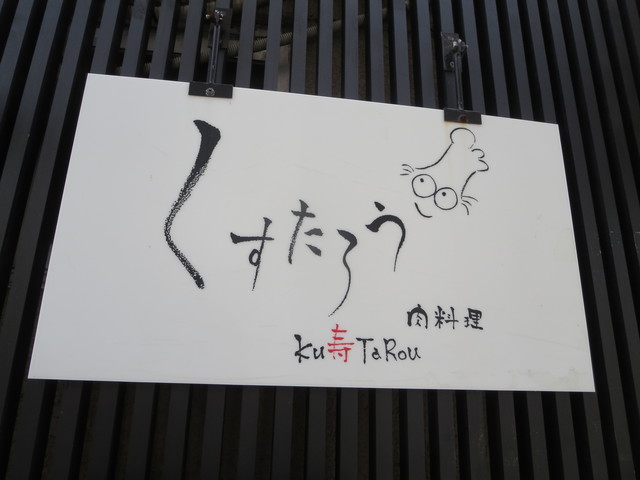 くすたろう
肉料理
Ku寿TaRou